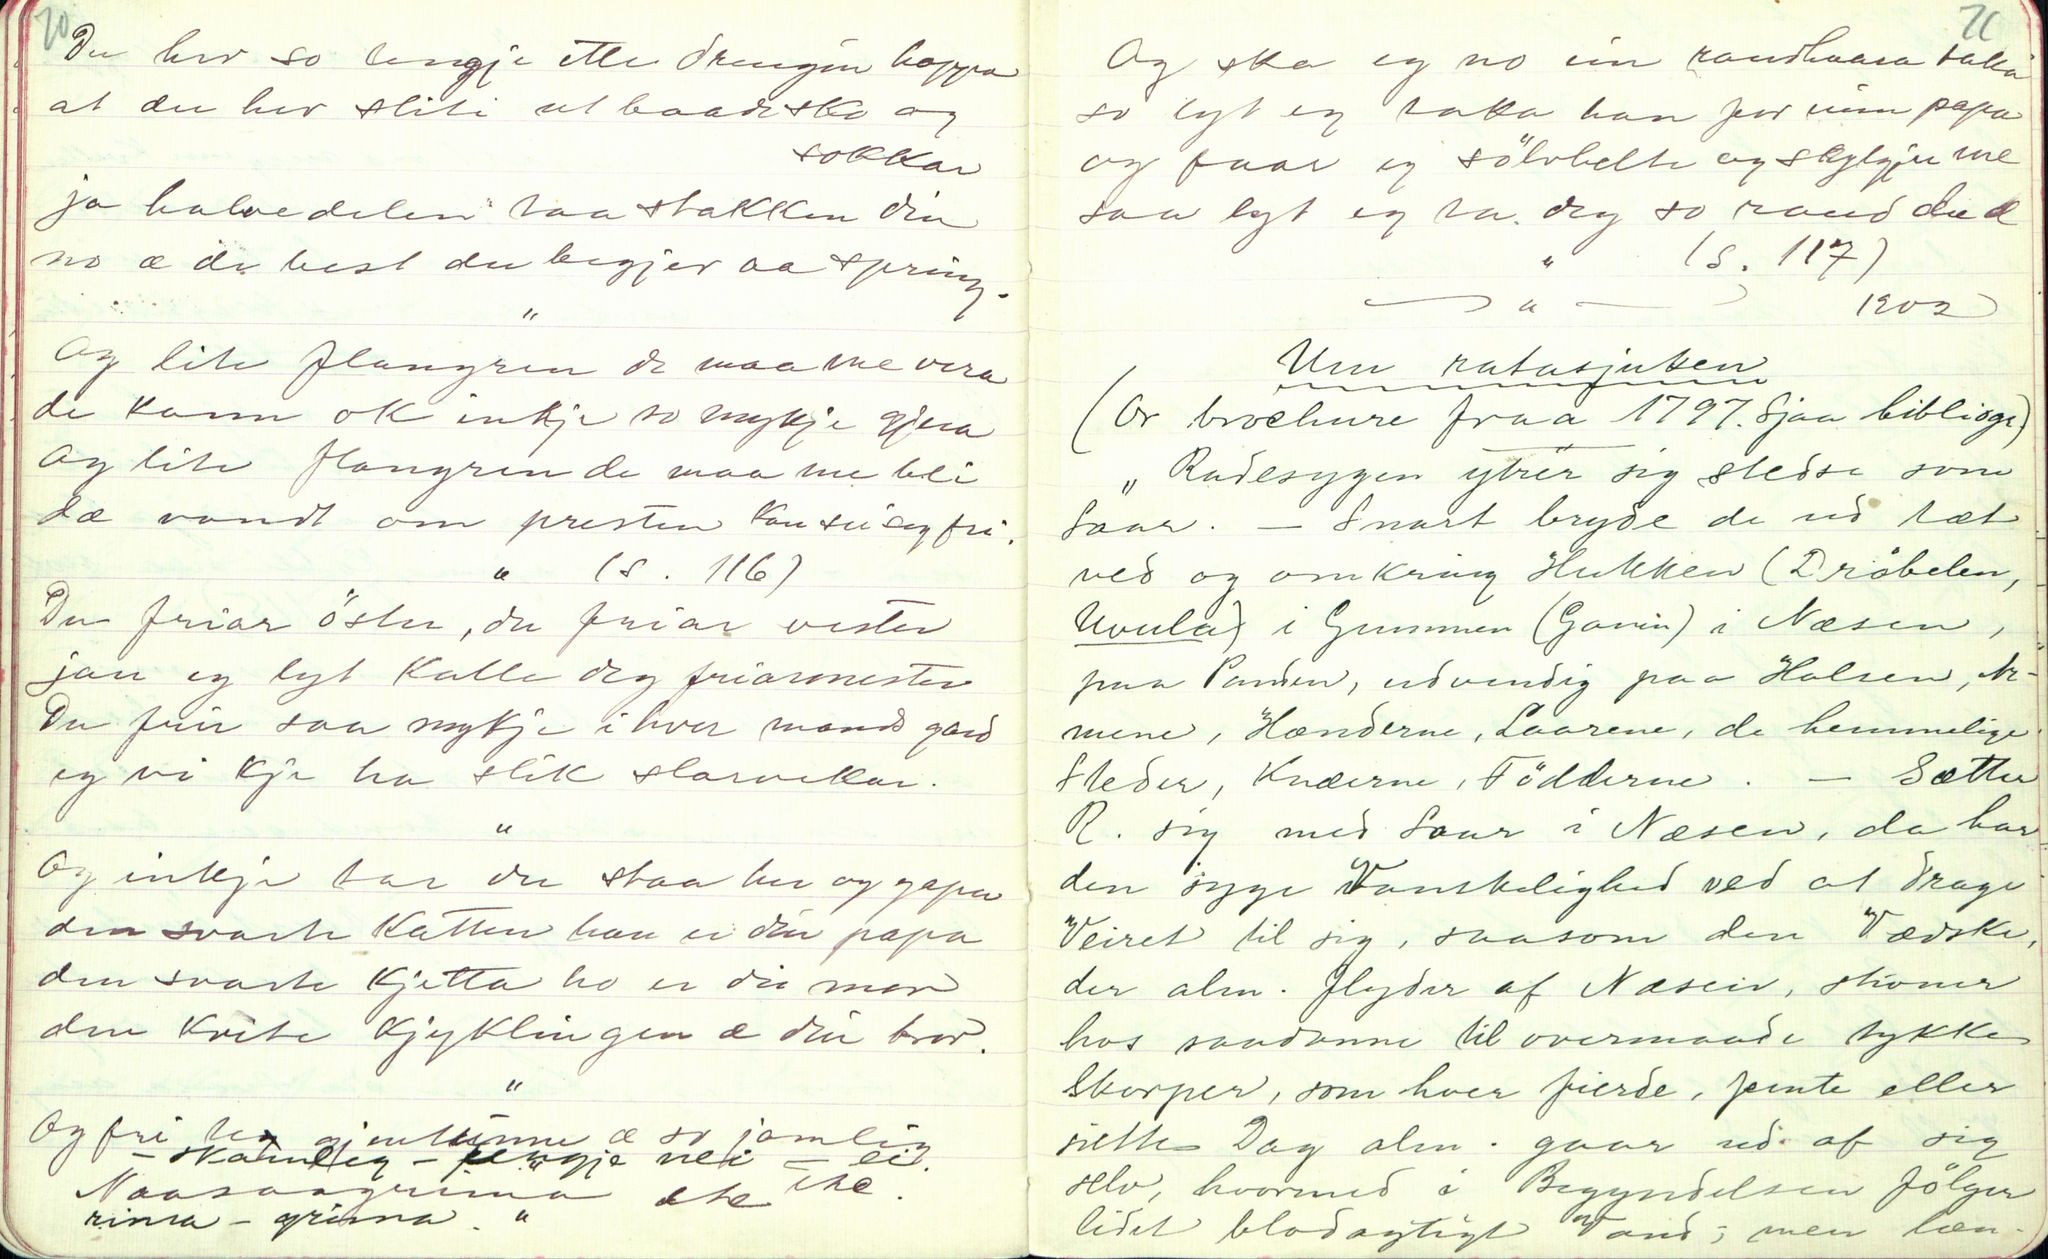 70
Du hev so lengje ette drengin hoppa
at du hev sliti ut baade sko og
sokkar
ja halvedelen taa stakken din
no æ de best du begjev aa spring.
"
Og lite flangren de maa me vera
de kann ok inkje so mykje gjera
Og lite flangren de maa me bli
dæ vondt om presten kan sei seg fri.
" (s. 116)
Du friar öster, du friar vester
jau eg lyt kalle deg friarmester
Du frir saa mykje i hver mands gard
eg vi kje ha slik slarvekar.
"
Og inkje tar du staa her og gapa
den svarte katten han er din papa
den svarte kjetta ho er di mor
den kvite kjyklingen æ din bror.
"
Og fri jentunne æ so jamleg
- skamleg - lengje nei - ei.
Naasaagrima ete ete.
rima - grima. "
71
Og ska eg no ein raudhaara taka
so lyt eg taka han for min papa
og faar eg sölvbelte og sylgju me
saa lyt eg ta deg so raud du æ
" (s. 117)
" 1902
Um ratasjuken
(Or brochure fraa 1797. Sjaa bibliogr)
„Radesygen ytrer sig stedse som
Saar. — Snart bryde de ud tæt
ved og omkring Hukken (Dröbelen,
Uvula) i Gummen (Ganen) i Næsen,
paa Panden, udvendig paa Halsen, Ar-
mene, Hænderne, Laarene, de hemmelige
Steder, Knæerne, Födderne. — Sætter
R. sig med Saar i Næsen, da har
den syge Vanskelighed ved at drage
Veiret til sig, saasom den Vædske,
der alm. flyder af Næsen, stivner
hos saadanne til overmaade tykke
Skorper, som hver fierde, femte eller
siette Dag alm. gaar ud af sig
selv, hvormed i Begyndelsen fölger
lidet blodagtigt Vand; men læn-